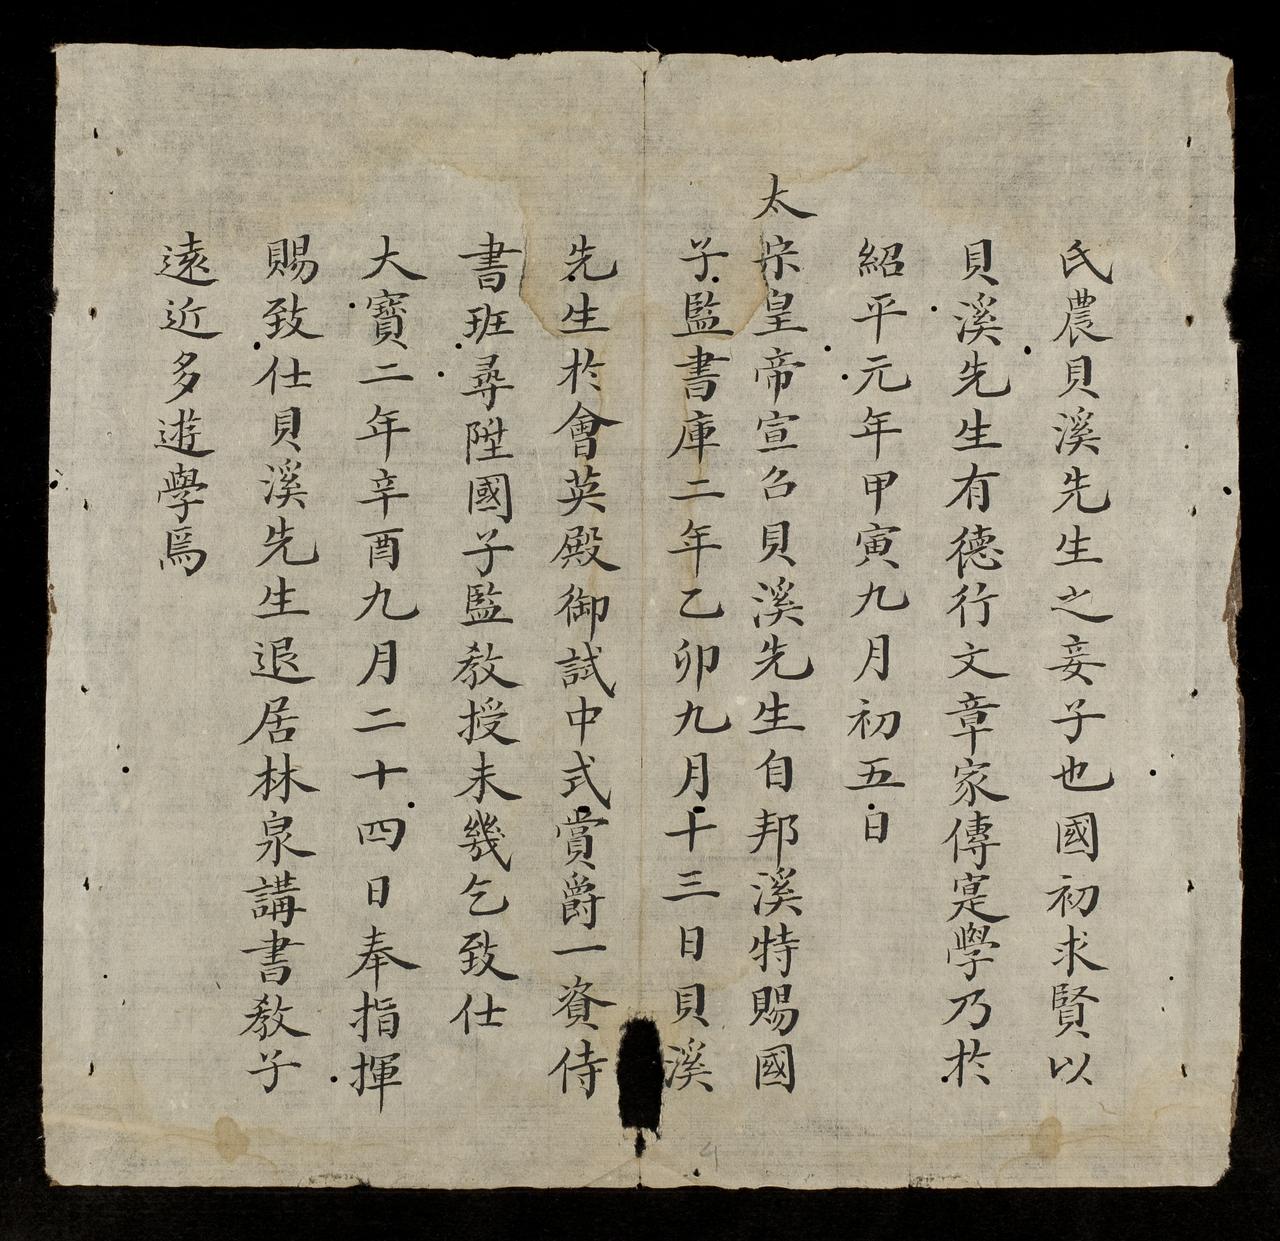 氏農貝溪先生之妾子也國初求賢以
貝溪先生有德行文章家傳寔學乃於
紹平元年甲寅九月初五日
太宗皇帝宣召貝溪先生自邦溪特賜國
子監書庫二年乙卯九月十三日貝溪
先生於會英殿御試中式賞爵一資侍
書班尋陞國子監教授未幾乞致仕
大寶二年辛酉九月二十四日奉指揮
賜致仕貝溪先生退居林泉講書教子
遠近多遊學焉